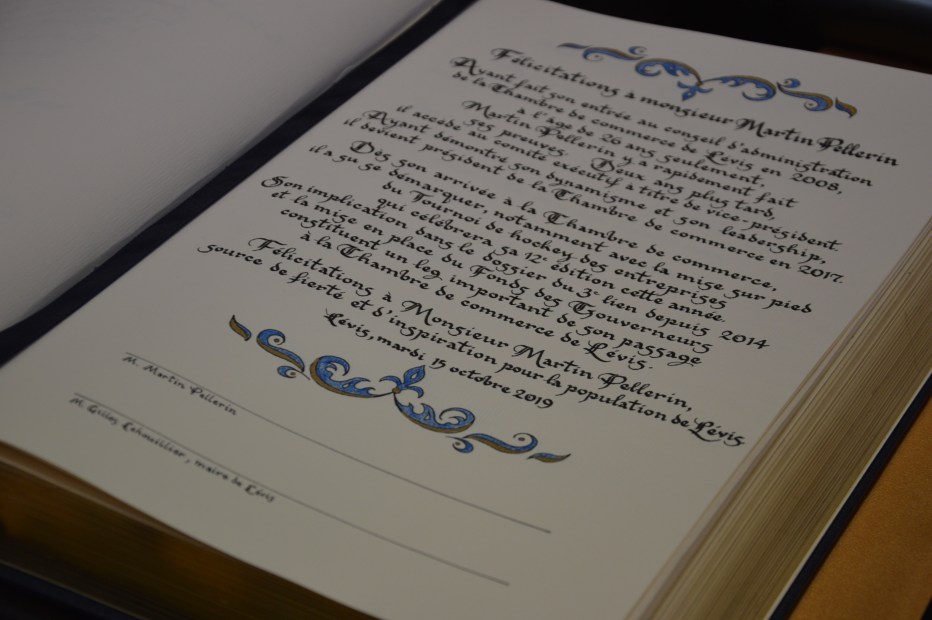 Félicitations à monsieur Martin Pellerin
Ayant fait son entrée au conseil d'administration
de la Chambre de commerce de Lévis en 2008,
à l'âge de 26 ans seulement,
Martin Pellerin y a rapidement fait
ses preuves. Deux ans plus tard,
il accède au comité exécutif à titre de vice-président
Ayant démontré son dynamisme et son leadership,
il devient président de la Chambre de commerce en 2017.
Dès son arrivée à la Chambre de commerce,
il a su se démarquer, notamment avec la mise sur pied
du Tournoi de hockey des entreprises
qui célébrera sa 12e édition cette année.
Son implication dans le dossier du 3e lien depuis 2014
et la mise en place du Fonds des Gouverneurs
constituent un leg important de son passage
à la Chambre de commerce de Lévis.
Félicitations à Monsieur Martin Pellerin,
source de fierté et d'inspiration, pour la population de Lévis
Lévis, mardi 15 octobre 2019
M. Martin Pellerin
M. Gilles Lehouillier, maire de Lévis